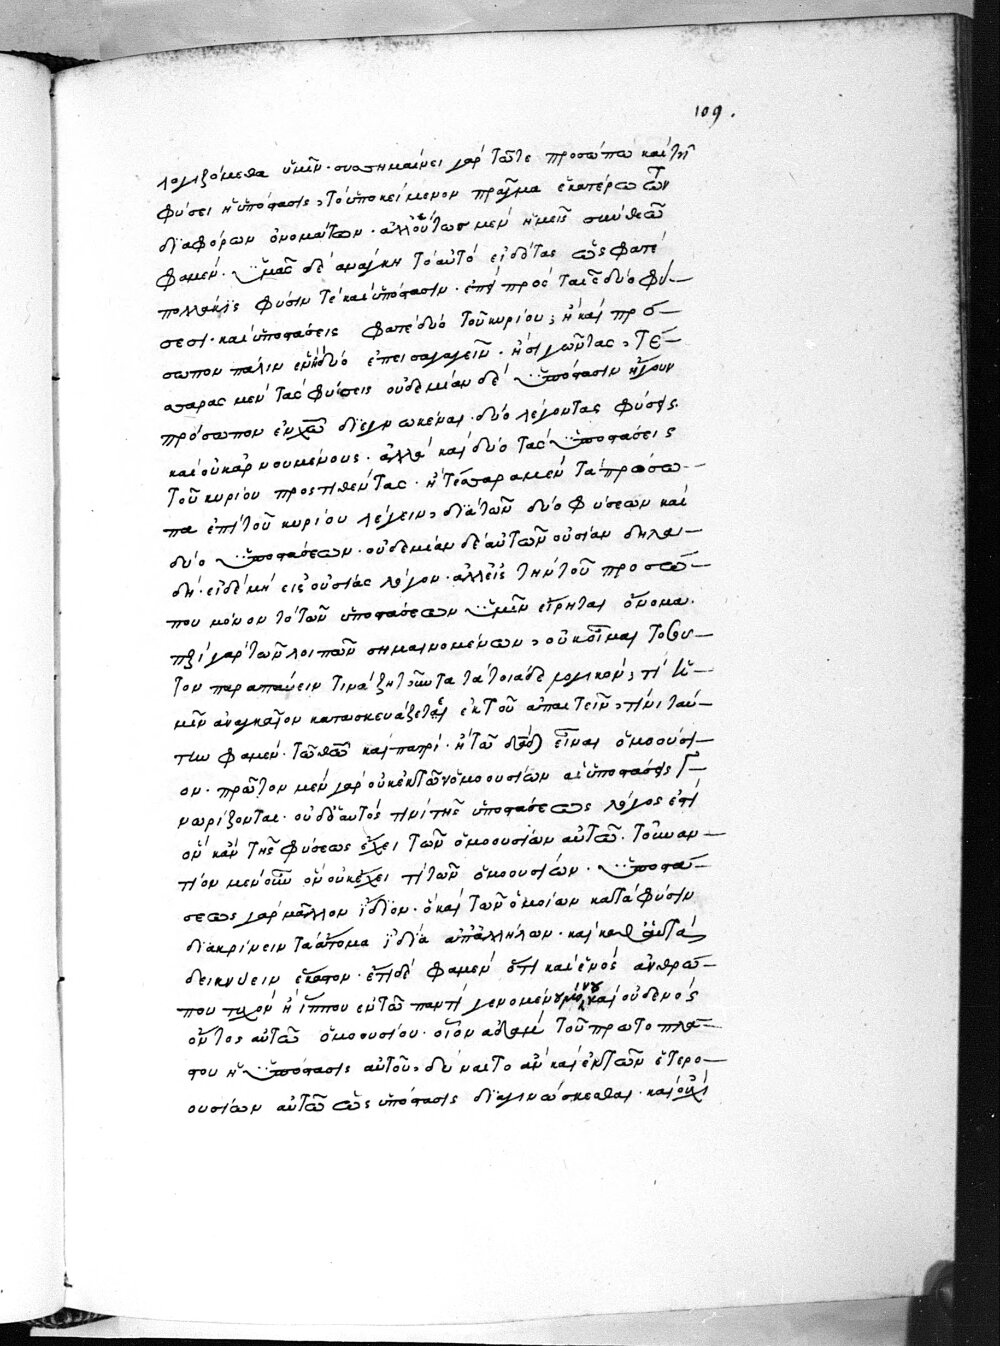 109.
λογιζόμεθα ὑμῖν· συσσημαίνει γὰρ τῶ τε προσώπω καὶ τῆ
φύσει ἡ ὑπόστασις, τὸ ὑποκείμενον πρᾶγμα ἑκατέρω τῶν
διαφόρων ὀνομάτων. ἀλλ' οὕτως μὲν ἡμεῖς σὺν θεῶ
φαμέν. ὑμᾶς δὲ ἀνάγκη τὸ αὐτὸ εἰδότας ὥς φατε
πολλάκις φύσιν τὲ καὶ ὑπόστασιν. ἐπεὶ πρὸς ταῖς δύο φύ-
σεσι καὶ ὑποστάσεις φατὲ δύο τοῦ κυρίου, ἢ καὶ πρόσ-
ωπον πάλιν ἓν ἢ δύο ἐπεισαγαγεῖν. ἢ σιγῶντας, τέσ-
σαρας μὲν τὰς φύσεις οὐδεμίαν δὲ ὑπόστασιν ἤγουν
πρόσωπον ἐν χῶ διεγνωκέναι. δύο λέγοντας φύσεις
καὶ οὐκ ἀρνουμένους. ἀλλὰ καὶ δύο τὰς ὑποστάσεις
τοῦ κυρίου προστιθέντας. ἢ τέσσαρα μὲν τὰ πρόσω-
πα ἐπὶ τοῦ κυρίου λέγειν, διὰ τῶν δύο φύσεων καὶ
δύο ὑποστάσεων. οὐδεμίαν δὲ αὐτῶν οὐσίαν δηλα-
δή. εἰ δὲ μὴ εἰς οὐσίας λόγον. ἀλλ' εἰς τὴν τοῦ προσώ-
που μόνον τὸ τῶν ὑποστάσεων ὑμῖν εἴρηται ὄνομα.
γὰρ τῶν λοιπῶν σημαινομένων, οὐκ οἶμαι
τον παραπαίειν τινὰ ζητοῦντα τὰ τοιάδε μογικόν, τί
μῖν ἀναγκαῖον κατασκευάζεται ἐκ τοῦ ἀπαιτεῖν, τίνι ταύ-
την φαμέν. τῶ καὶ πατρί. ἢ τῶ δαδ εἶναι ὁμοούσι-
ον. πρῶτον μὲν γὰρ οὐκ ἐκ τῶν ὁμοουσίων αἱ ὑποστάσεις γ-
νωρίζονται. οὐδ' αὐτός τινι τῆς ὑποστάσεως λόγος ἐστὶ
ὃν κἂν τῆς φύσεως ἔχει τῶν ὁμοουσίων αὐτῶ. τοὐναν-
τίον μὲν οὖν ὃν οὐκ ἔχει τί τῶν ὁμοουσίων. ὑποστά-
σεως γὰρ μᾶλλον ἴδιον. ὃ καὶ τῶν ὁμοίων κατὰ φύσιν
διακρίνειν τὰ ἄτομα ἰδία ἀπ' ἀλλήλων. καὶ καθ' αὑτὰ
δεικνύειν ἕκαστον. ἔτι δέ φαμεν ὅτι καὶ ἑνὸς ἀνθρώ-
που τυχὸν ἢ ἵππου ἐν τῶ παντὶ γενομένου μόνου καὶ οὐδενὸς
ὄντος αὐτῶ ὁμοουσίου. οἷον ἀδὰμ τοῦ πρωτοπλά-
του ἡ ὑπόστασις αὐτοῦ, δύναιτο ἂν καὶ ἐκ τῶν ἑτερο-
ουσίων αὐτῶ ὡς ὑπόστασις διαγινώσκεσθαι. καὶ οὐχὶ